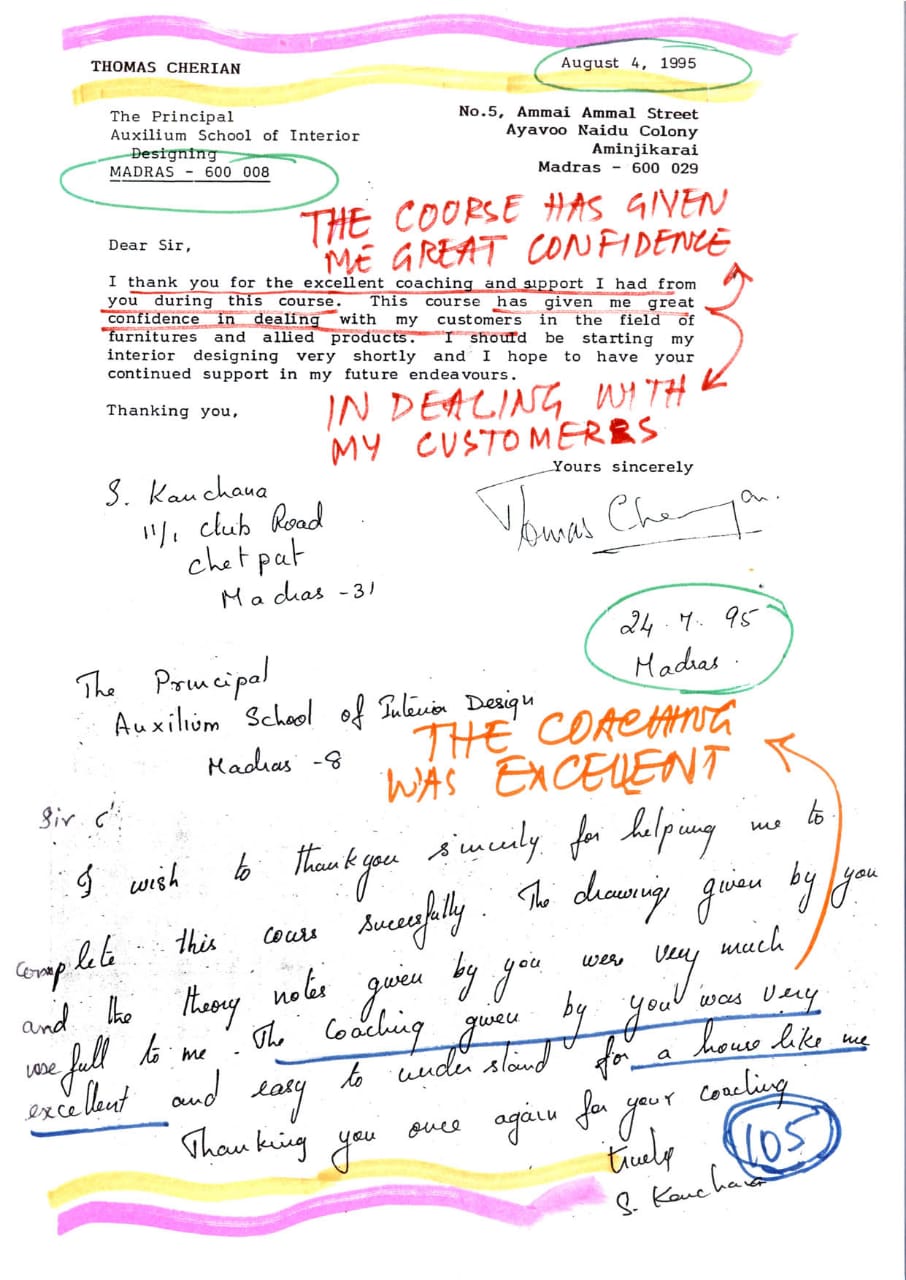 THOMAS CHERIAN
August 4, 1995
The Principal
Auxilium School of Interior
Designing
MADRAS - 600 008
No.5, Ammai Ammal Street
Ayavoo Naidu Colony
Aminjikarai
Madras - 600 029
THE COORSE HAS GIVEN
ME GREAT CONFIDENCE
Dear Sir,
I thank you for the excellent coaching and support I had from
you during this course. This course has given me great
confidence in dealing with my customers in the field of
furnitures and allied products. I should be starting my
interior designing very shortly and I hope to have your
continued support in my future endeavours.
Thanking you,
IN DEALING WITH
MY CUSTOMERS
Yours sincerely
Thomas Cherian.
S. Kanchana
11/1 Club Road
Chetpat
Madras - 31
24. 7. 95
Madras.
The Principal
Auxilium School of Interior Design
Madras - 8
THE COACHING
WAS EXCELLENT
Sir
I wish to thankyou sincerly for helping me to
complete this cours sucessfully. The drawings given by you
and the theory notes given by you were very much
usefull to me. The Coaching given by you was very
excellent and easy to understand for a house like me
Thanking you once again for your coaching
truely
S. Kanchana
105